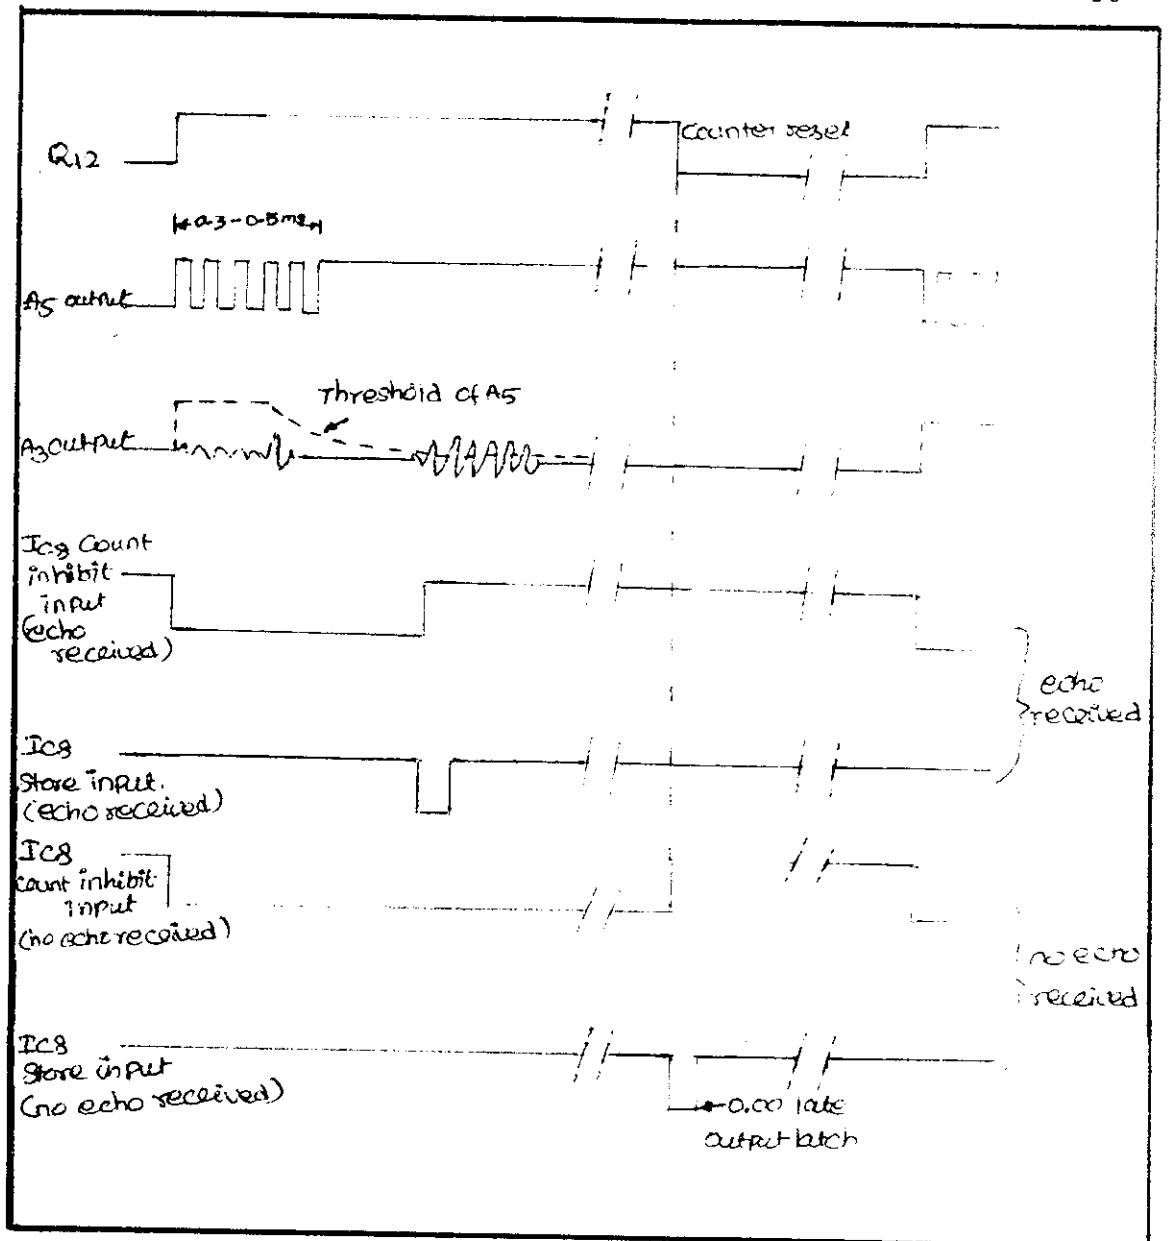 Counter reset
Q12
0.3-0.5ms
A5 output
Threshold of A5
A3 output
Ic8 Count
inhibit
input
(echo
received)
echo
received
Ic8
Store input.
(echo received)
Ic8
count inhibit
input
(no echo received)
no echo
received
Ic8
Store input
(no echo received)
0.00 late
output latch